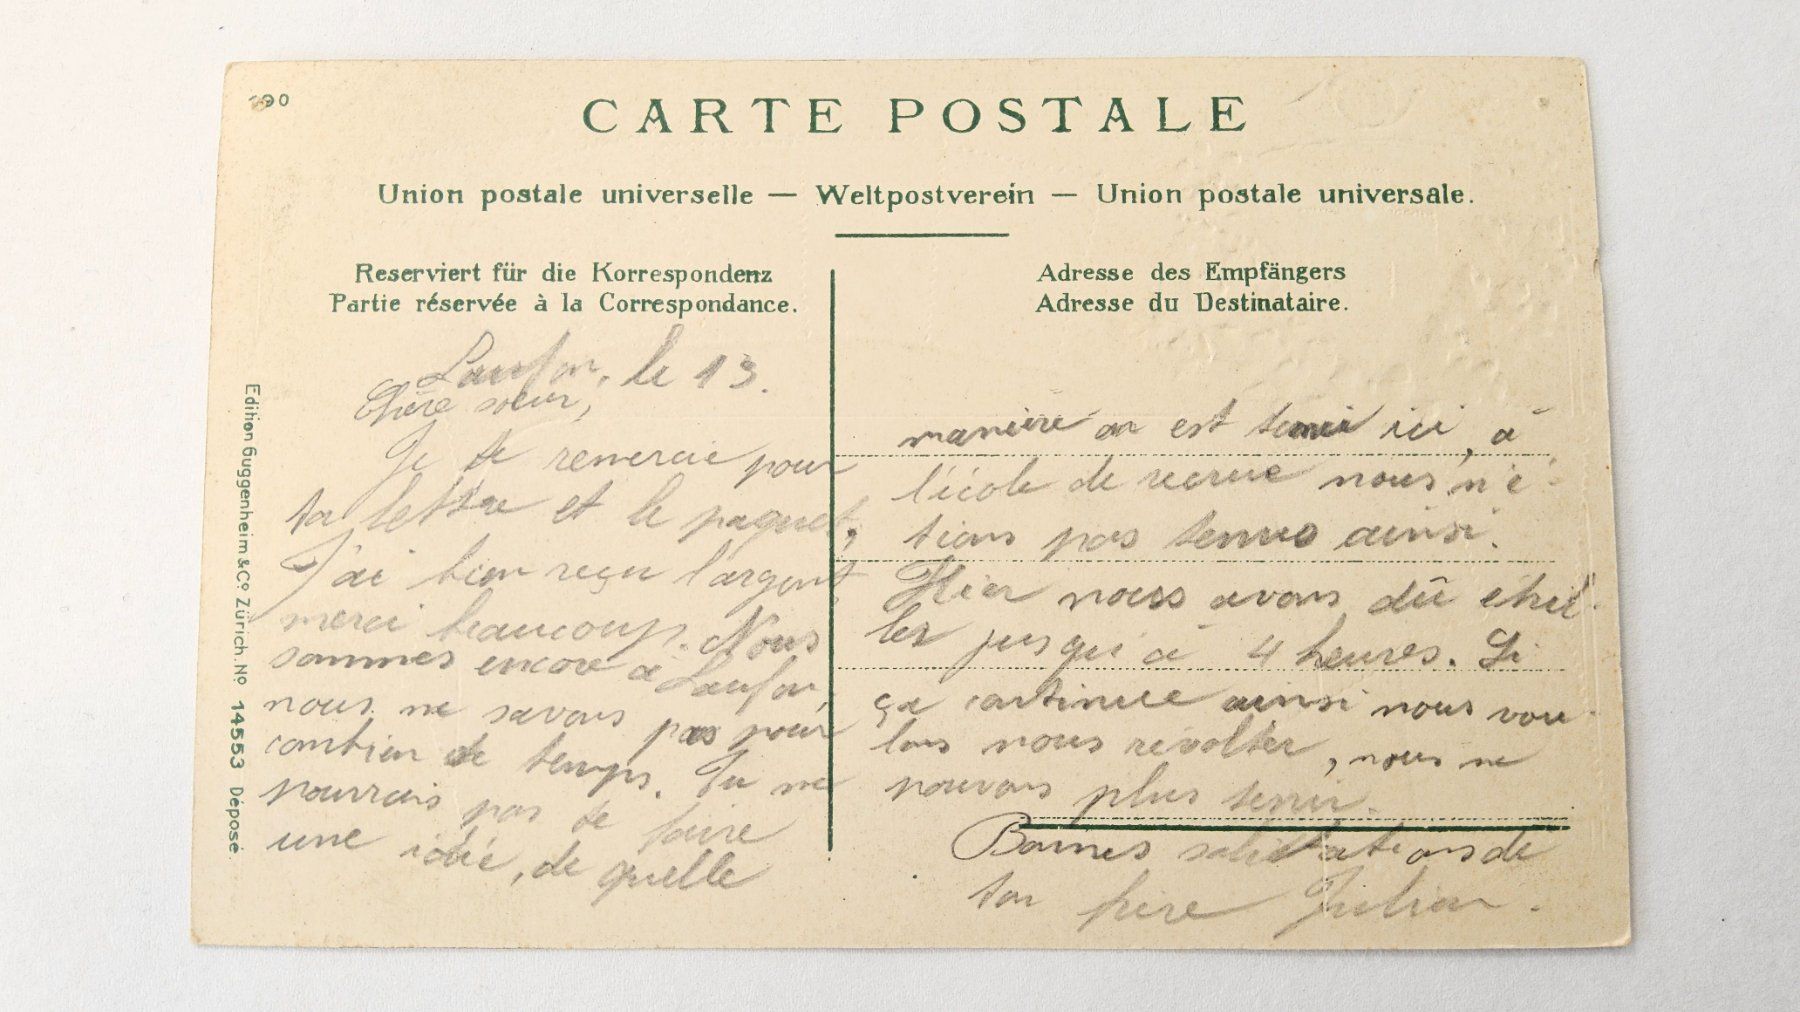 190
CARTE POSTALE
Union postale universelle — Weltpostverein — Union postale universale.
Reserviert für die Korrespondenz
Partie réservée à la Correspondance.
Adresse des Empfängers
Adresse du Destinataire.
Edition Guggenheim & Co. Zürich. No. 14553 Déposé.
Laufon, le 13.
Chère soeur,
Je te remercie pour
ta lettre et le paquet,
J'ai bien reçu l'argent
merci beaucoup. Nous
sommes encore à Laufon,
nous ne savons pas pour
combien de temps. Tu ne
pourrais pas te faire
une idée, de quelle
manière on est tenu ici, à
l'école de recrue nous n'é-
tions pas tenus ainsi.
Hier nous avons dû
jusqu'à 4 heures. Si
ça continue ainsi nous vou-
lons nous révolter, nous ne
pouvons plus tenir.
Bonnes salutations de
ton frère Julien.